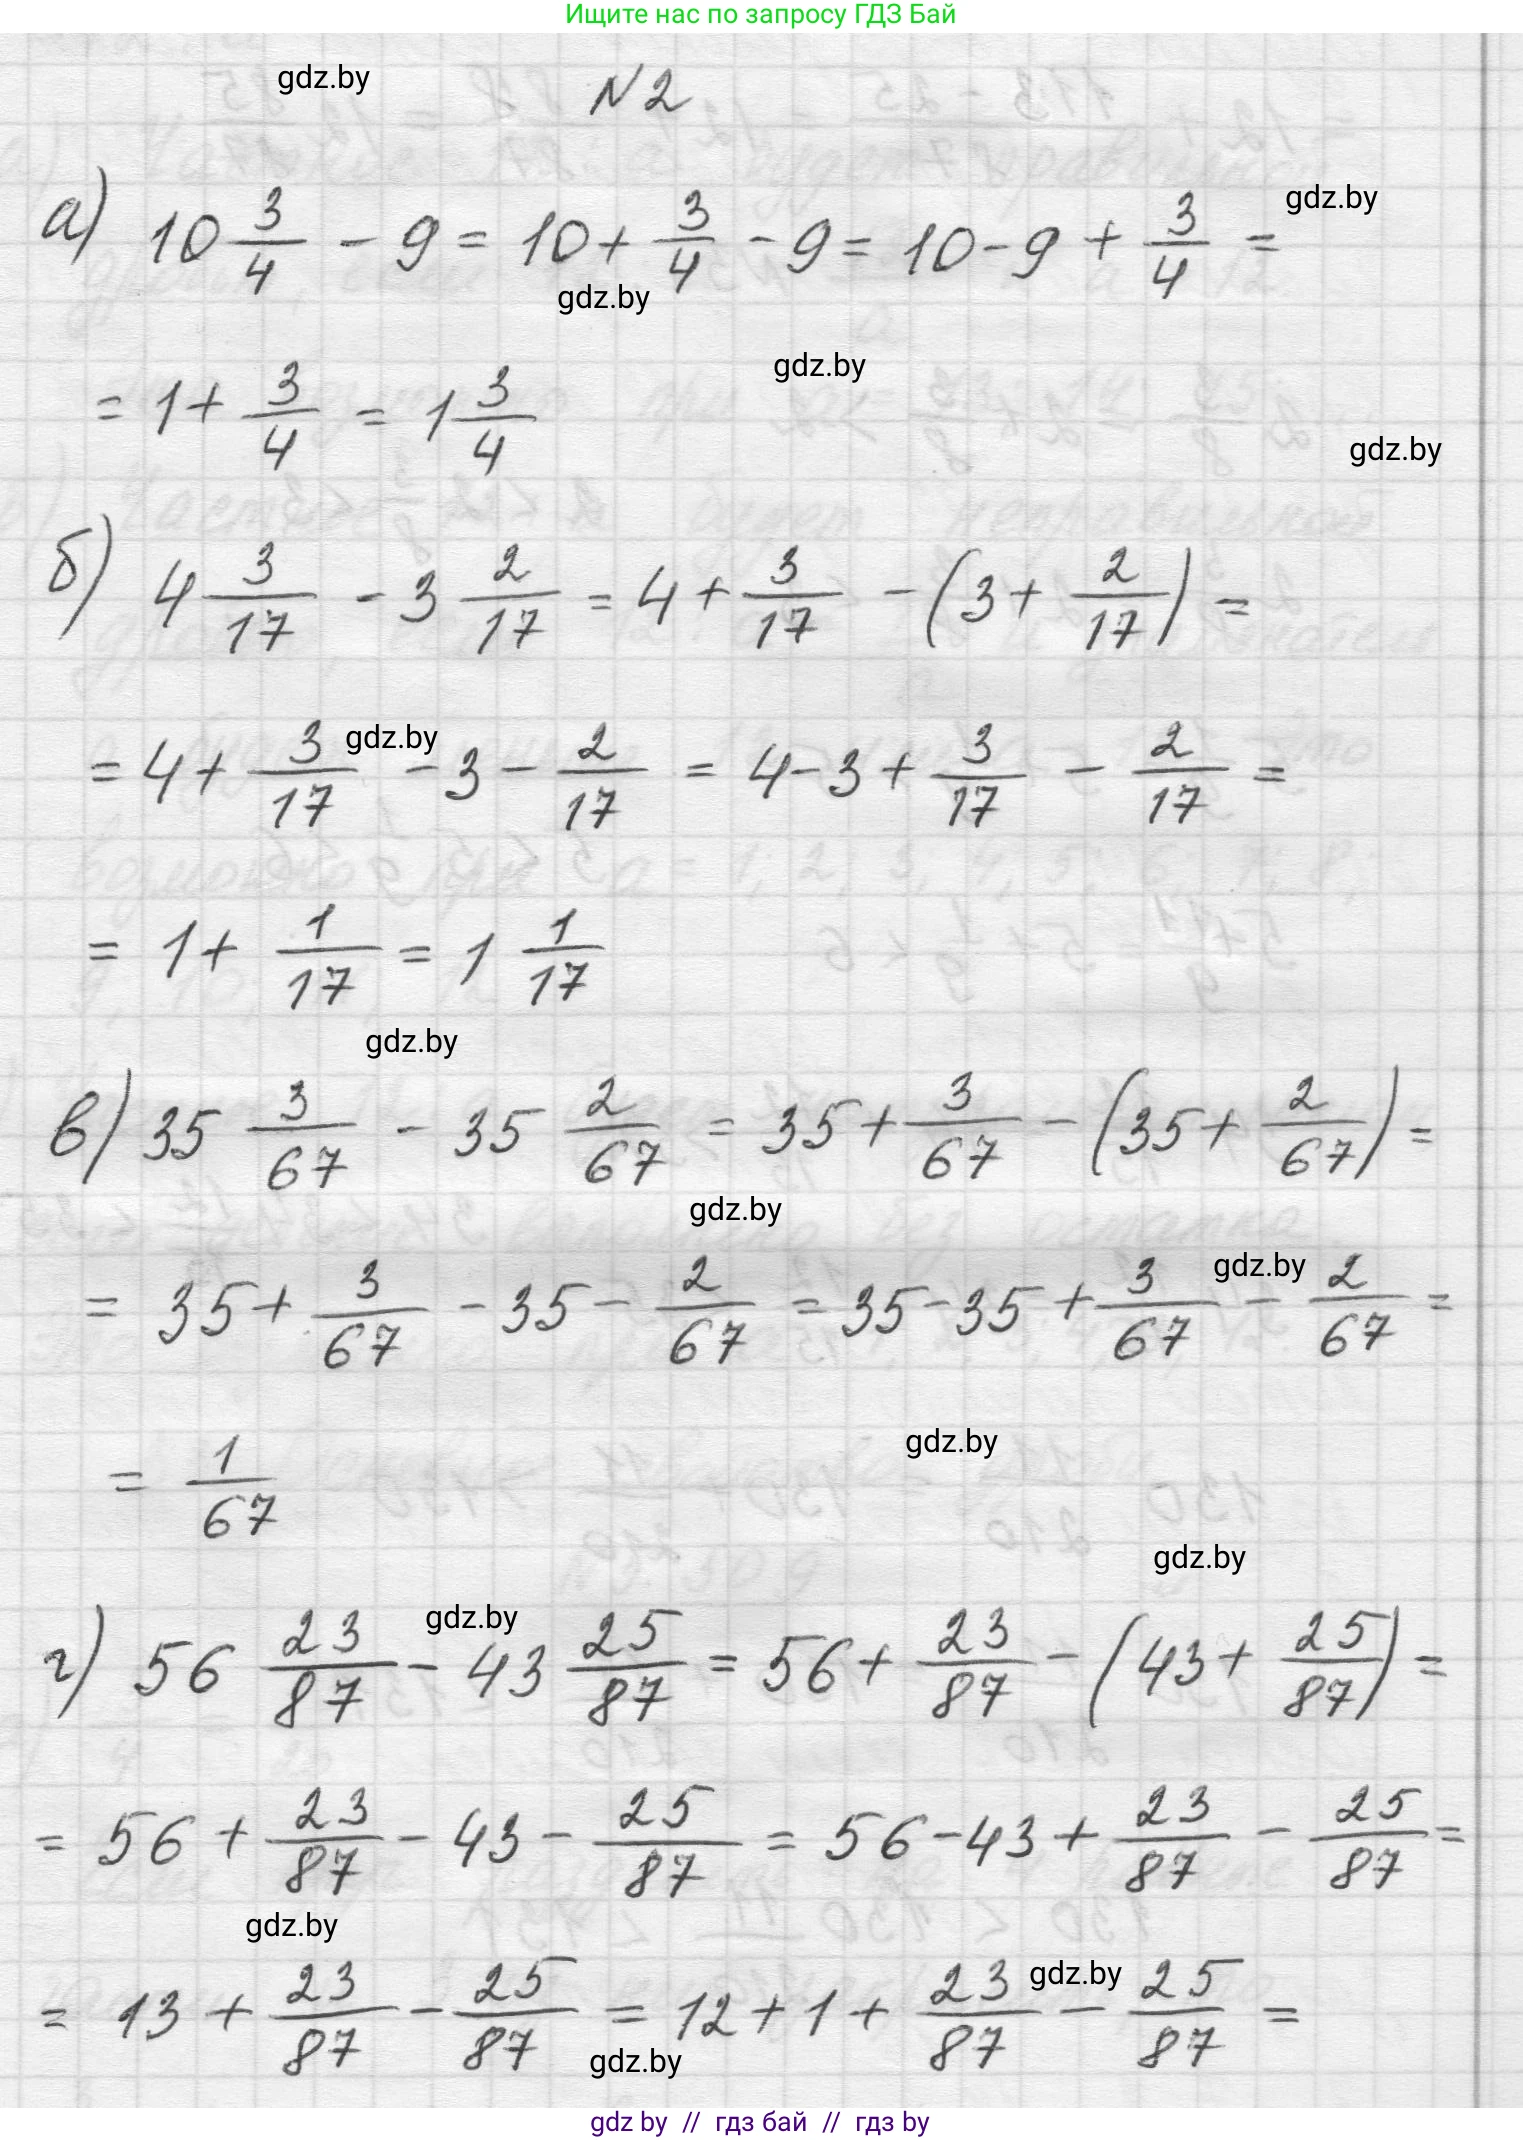 Ищите нас по запросу ГДЗ Бай
gdz.by
N2
а) 10 3/4 - 9 = 10 + 3/4 - 9 = 10 - 9 + 3/4 =
gdz.by
gdz.by
gdz.by
= 1 + 3/4 = 1 3/4
gdz.by
б) 4 3/17 - 3 2/17 = 4 + 3/17 - (3 + 2/17) =
gdz.by
= 4 + 3/17 - 3 - 2/17 = 4 - 3 + 3/17 - 2/17 =
= 1 + 1/17 = 1 1/17
gdz.by
в) 35 3/67 - 35 2/67 = 35 + 3/67 - (35 + 2/67) =
gdz.by
gdz.by
= 35 + 3/67 - 35 - 2/67 = 35 - 35 + 3/67 - 2/67 =
gdz.by
= 1/67
gdz.by
gdz.by
г) 56 23/87 - 43 25/87 = 56 + 23/87 - (43 + 25/87) =
= 56 + 23/87 - 43 - 25/87 = 56 - 43 + 23/87 - 25/87 =
gdz.by
gdz.by
= 13 + 23/87 - 25/87 = 12 + 1 + 23/87 - 25/87 =
gdz.by
gdz by // гдз бай // гдз by